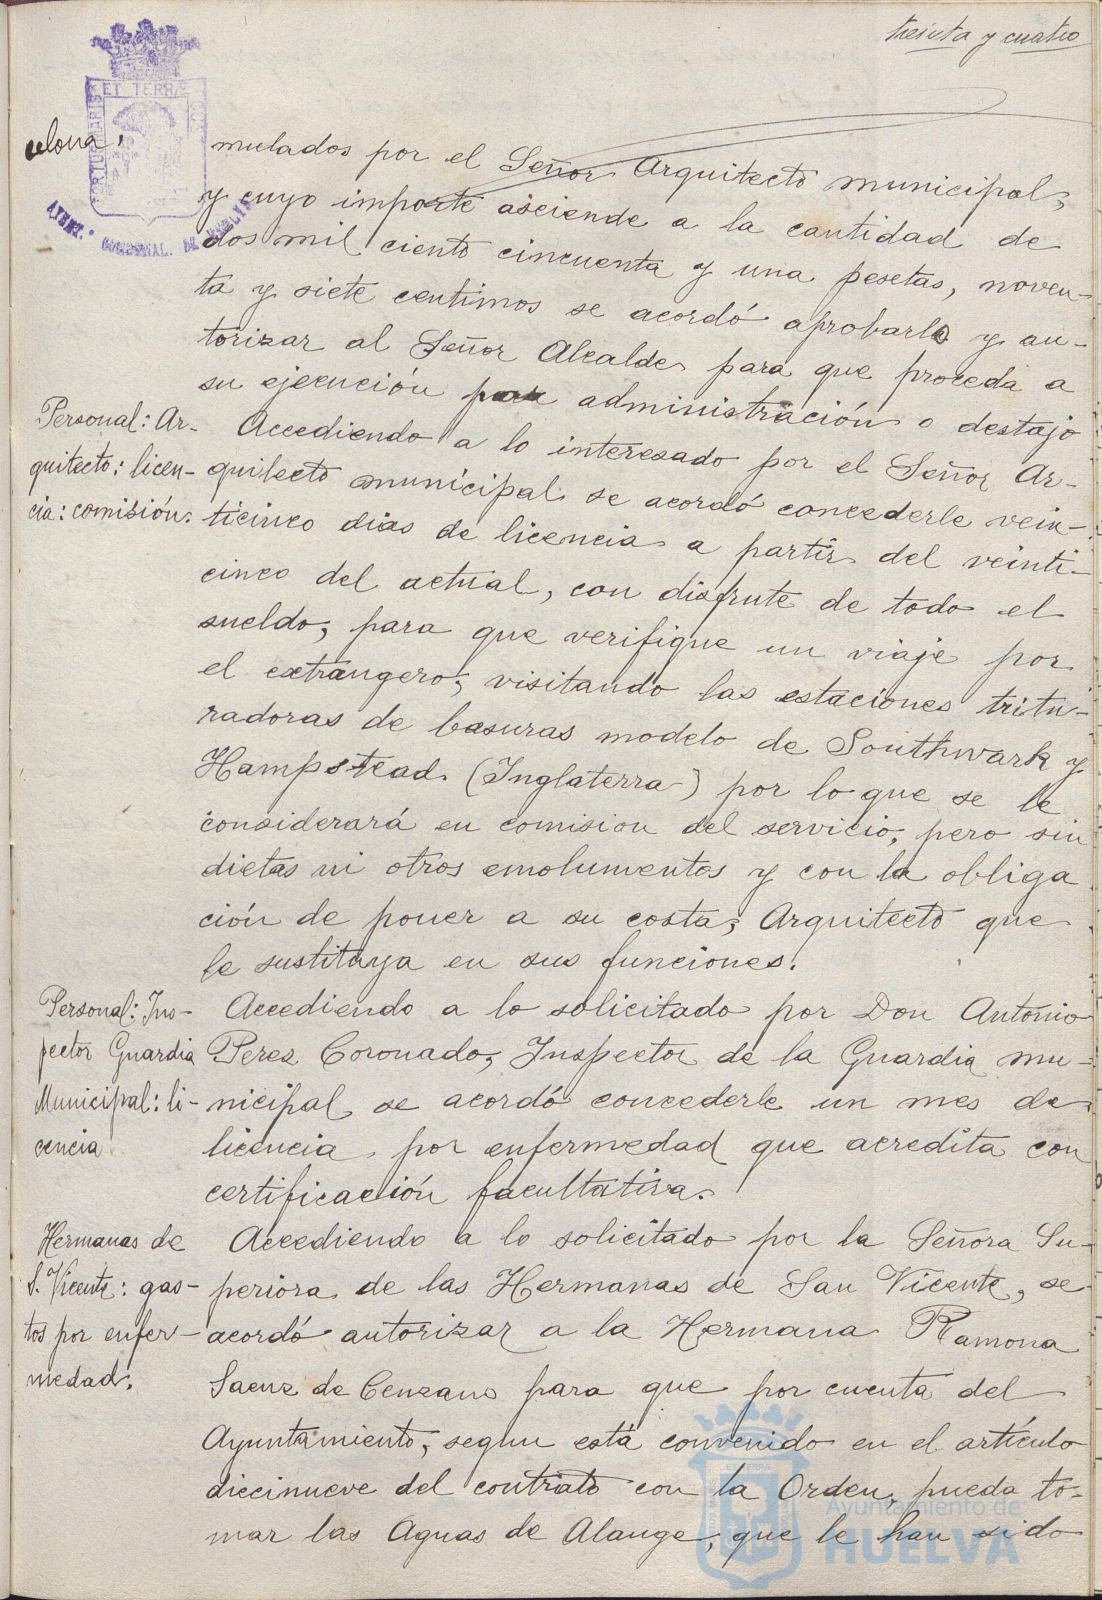 treinta y cuatro
ET TERRÆ
PORTUS MARIS
AYTNº CONSTNAL. DE HUELVA
celona,
mulados por el Señor Arquitecto municipal,
y cuyo importe asciende a la cantidad de
dos mil ciento cincuenta y una pesetas, noven-
ta y siete centimos se acordó aprobarlo y au-
torizar al Señor Alcalde para que proceda a
su ejecución por administración o destajo
Personal: Ar-
quitecto: licen-
cia: comisión.
Accediendo a lo interesado por el Señor Ar-
quitecto municipal se acordó concederle vein-
ticinco dias de licencia a partir del veinti-
cinco del actual, con disfrute de todo el
sueldo, para que verifique un viaje por
el extrangero, visitando las estaciones tritu-
radoras de basuras modelo de Southwark y
Hampstead (Inglaterra) por lo que se le
considerará en comision del servicio, pero sin
dietas ni otros emolumentos y con la obliga
ción de poner a su costa, Arquitecto que
le sustituya en sus funciones.
Personal: Ins-
pector Guardia
Municipal: li-
cencia
Accediendo a lo solicitado por Don Antonio
Perez Coronado, Inspector de la Guardia mu-
nicipal se acordó concederle un mes de
licencia por enfermedad que acredita con
certificación facultativa.
Hermanas de
S. Vicente: gas-
tos por enfer-
medad.
Accediendo a lo solicitado por la Señora Su-
periora de las Hermanas de San Vicente, se
acordó autorizar a la Hermana Ramona
Saenz de Cenzano para que por cuenta del
Ayuntamiento, segun está convenido en el artículo
diecinueve del contrato con la Orden, pueda to-
mar las Aguas de Alange, que le han sido
Ayuntamiento de
HUELVA